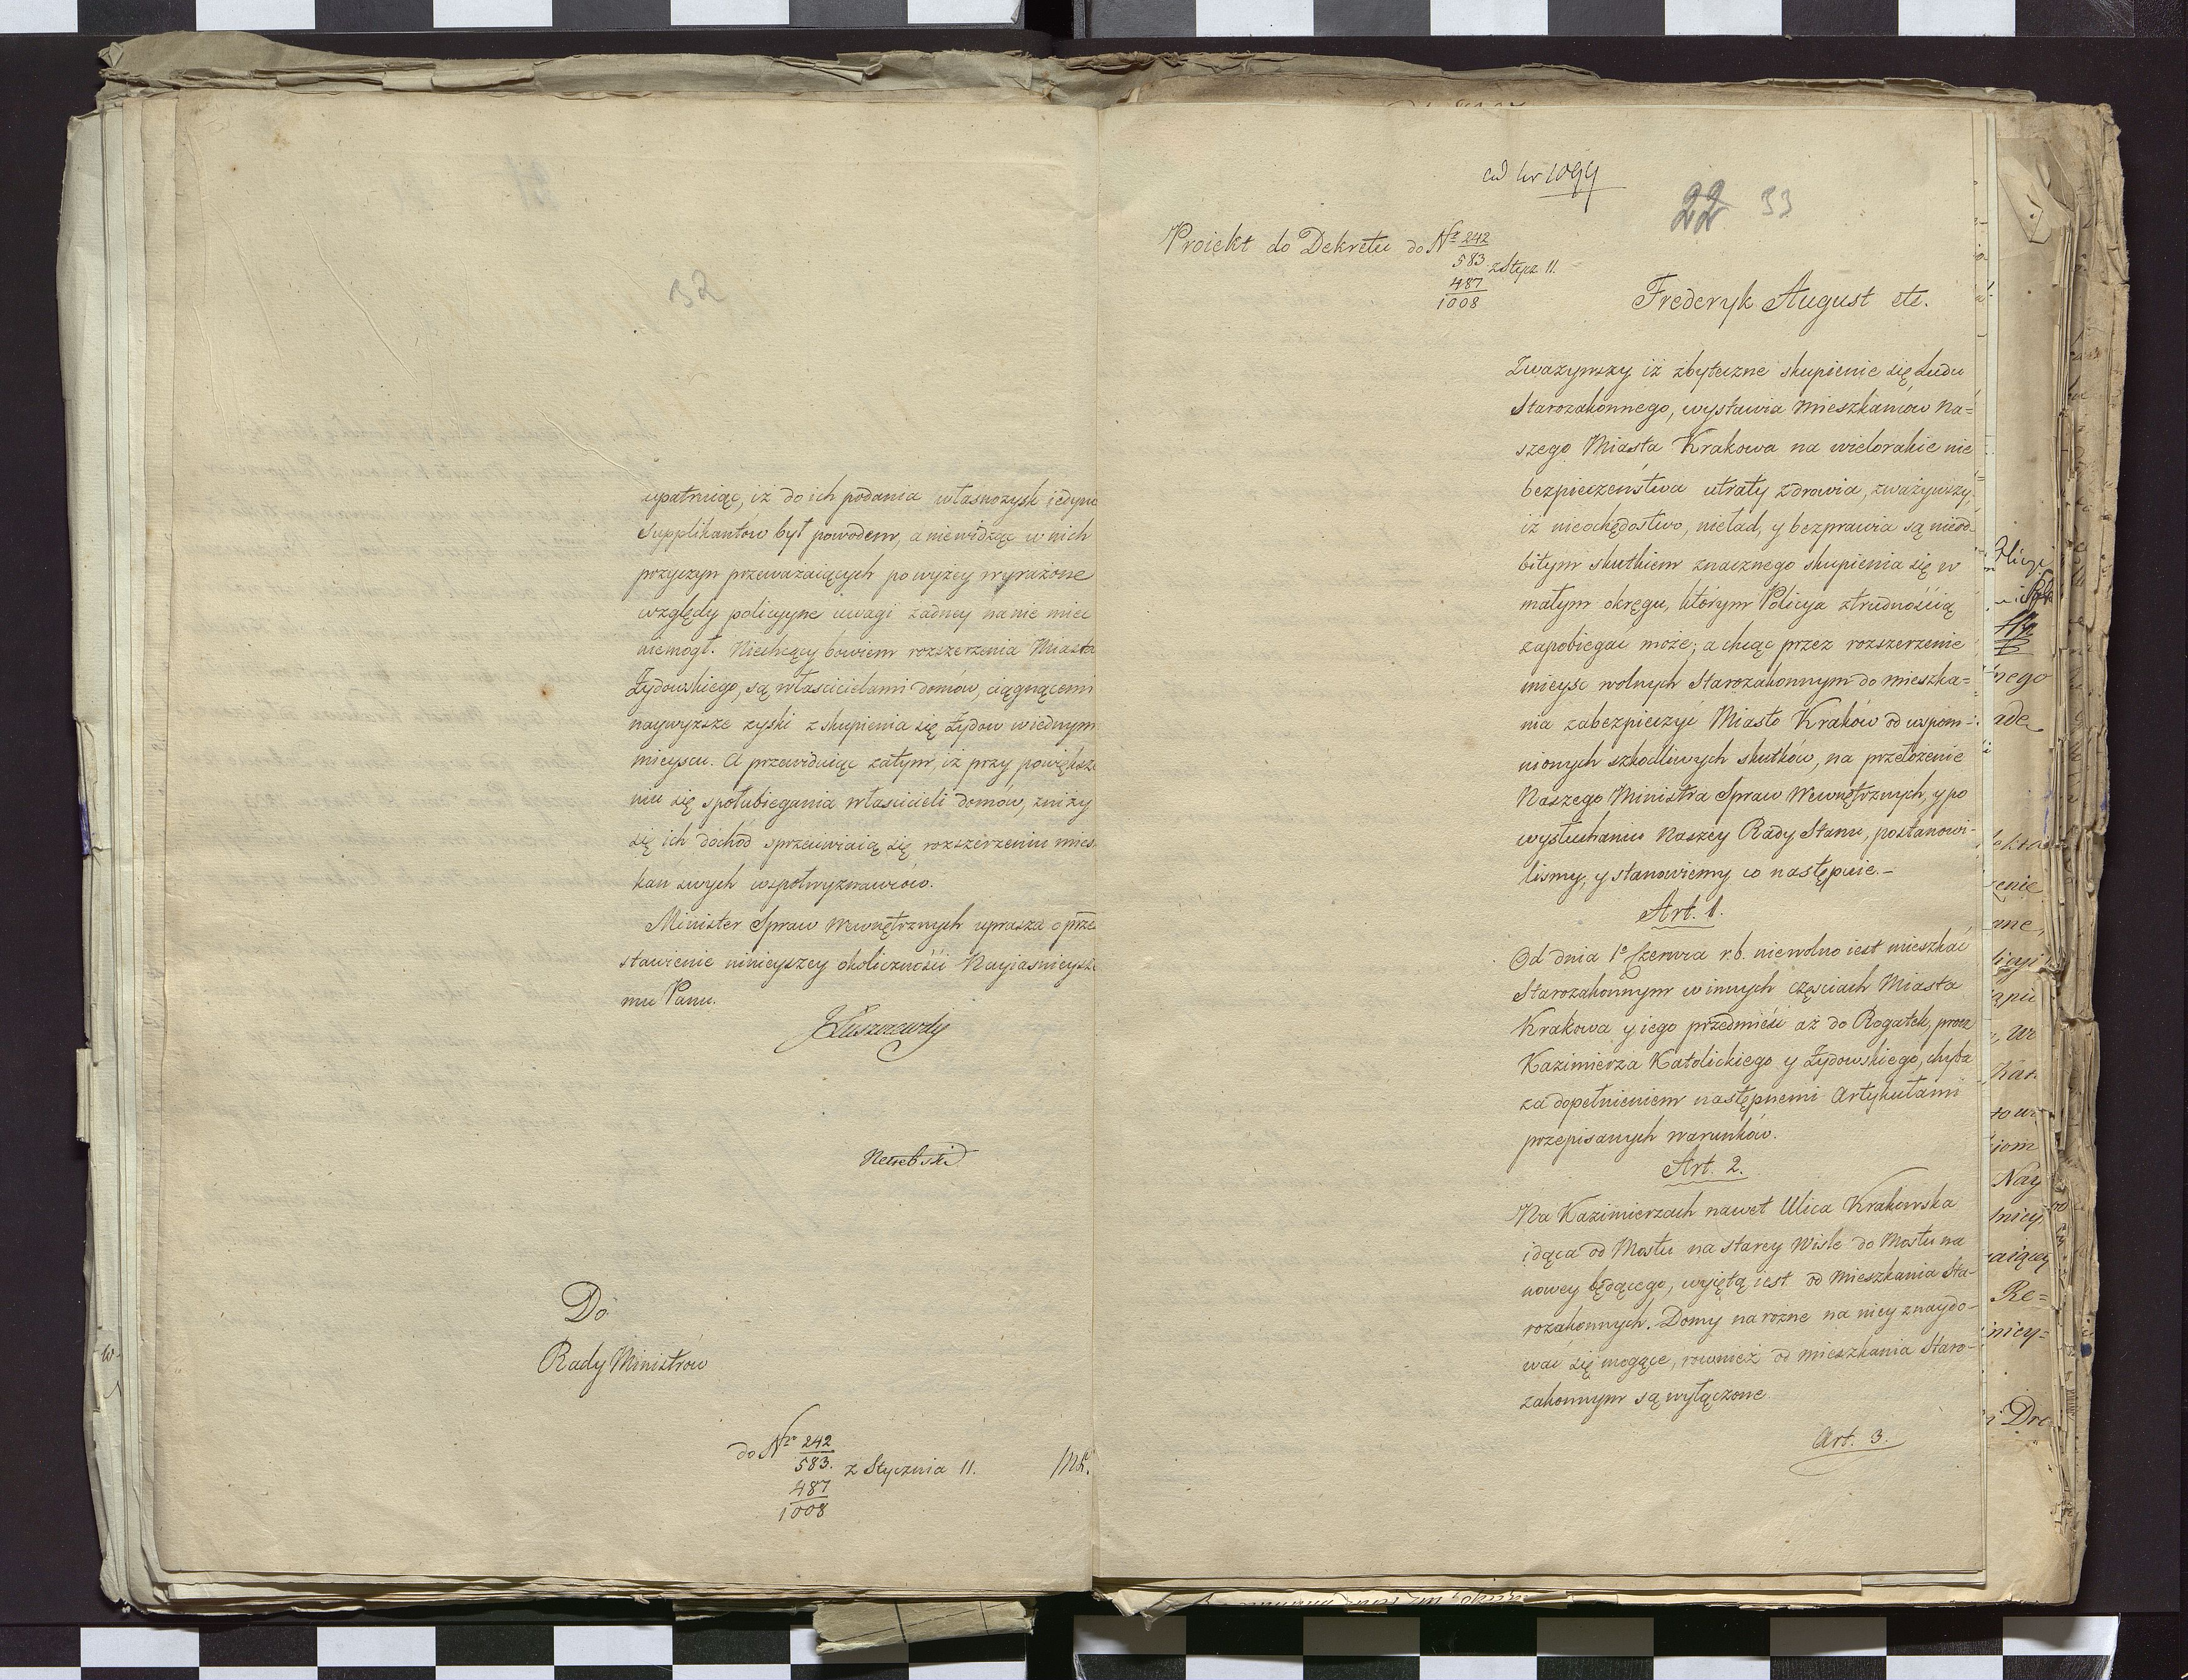 32
upatruiąc, iż do ich podania własnozysk iedyno
Supplikantow był powodem, a niewidząc w nich
przyczyn przeważaiących powyżey wyrażone
względy policyjne uwagi żadney na nie mieć
niemogł. Niechcący bowiem rozszerzenia Miasta
Żydowskiego, są właścicielami domów, ciągnącemi
naywyższe zyski z skupienia się Żydow wiednym
mieyscu. A przewiduiąc zatym, iż przy powiększe
niu się społubiegania właścicieli domów, zniży
się ich dochód sprzeciwiaią się rozszerzeniu miesz
kań swych wspołwyznawców.
Minister Spraw Wewnętrznych uprasza o prze
stawienie ninieyszey okoliczności Nayiaśnieysze
mu Panu.
JŁuszczewski
Do
Rady Ministrów
do Nro 242
583. z Stycznia 11.
487
1008
ad Nr 1094
22 33
Proiekt do Dekretu do Nro 242
583 z Stycz. 11.
487
1008
Frederyk August etc.
Zważywszy iż zbyteczne skupienie się Ludu
Starozakonnego, wystawia Mieszkańców Na=
szego Miasta Krakowa na wielorakie nie
bezpieczeństwa utraty zdrowia, zważywszy,
iż nieochędostwo, nieład, y bezprawia są nieod-
bitym skutkiem znacznego skupienia się w
małym okręgu, którym Policya z trudnością
zapobiegać może; a chcąc przez rozszerzenie
mieysc wolnych Starozakonnym do mieszka=
nia zabezpieczyć Miasto Kraków od wspom-
nionych szkodliwych skutków, na przełożenie
Naszego Ministra Spraw Wewnętrznych, y po
wysłuchaniu Naszey Rady Stanu, postanowi-
lismy, y stanowiemy co następuie.-
Art. 1.
Od dnia 1o Czerwca r.b. niewolno iest mieszkać
Starozakonnym w innych częściach Miasta
Krakowa y iego przedmieść aż do Rogatek, procz
Kazimierza Katolickiego y Żydowskiego, chyba
za dopełnieniem następnemi Artykułami
przepisanych warunków.
Art. 2.
Na Kazimierzach nawet Ulica Krakowska
idąca od Mostu na starey Wiśle do Mostu na
nowey będącego, wyjętą iest od mieszkania Sta-
rozakonnych. Domy narożne na niey znaydo-
wać się mogące, rownież od mieszkania Staro-
zakonnym są wyłączone.
Art. 3.